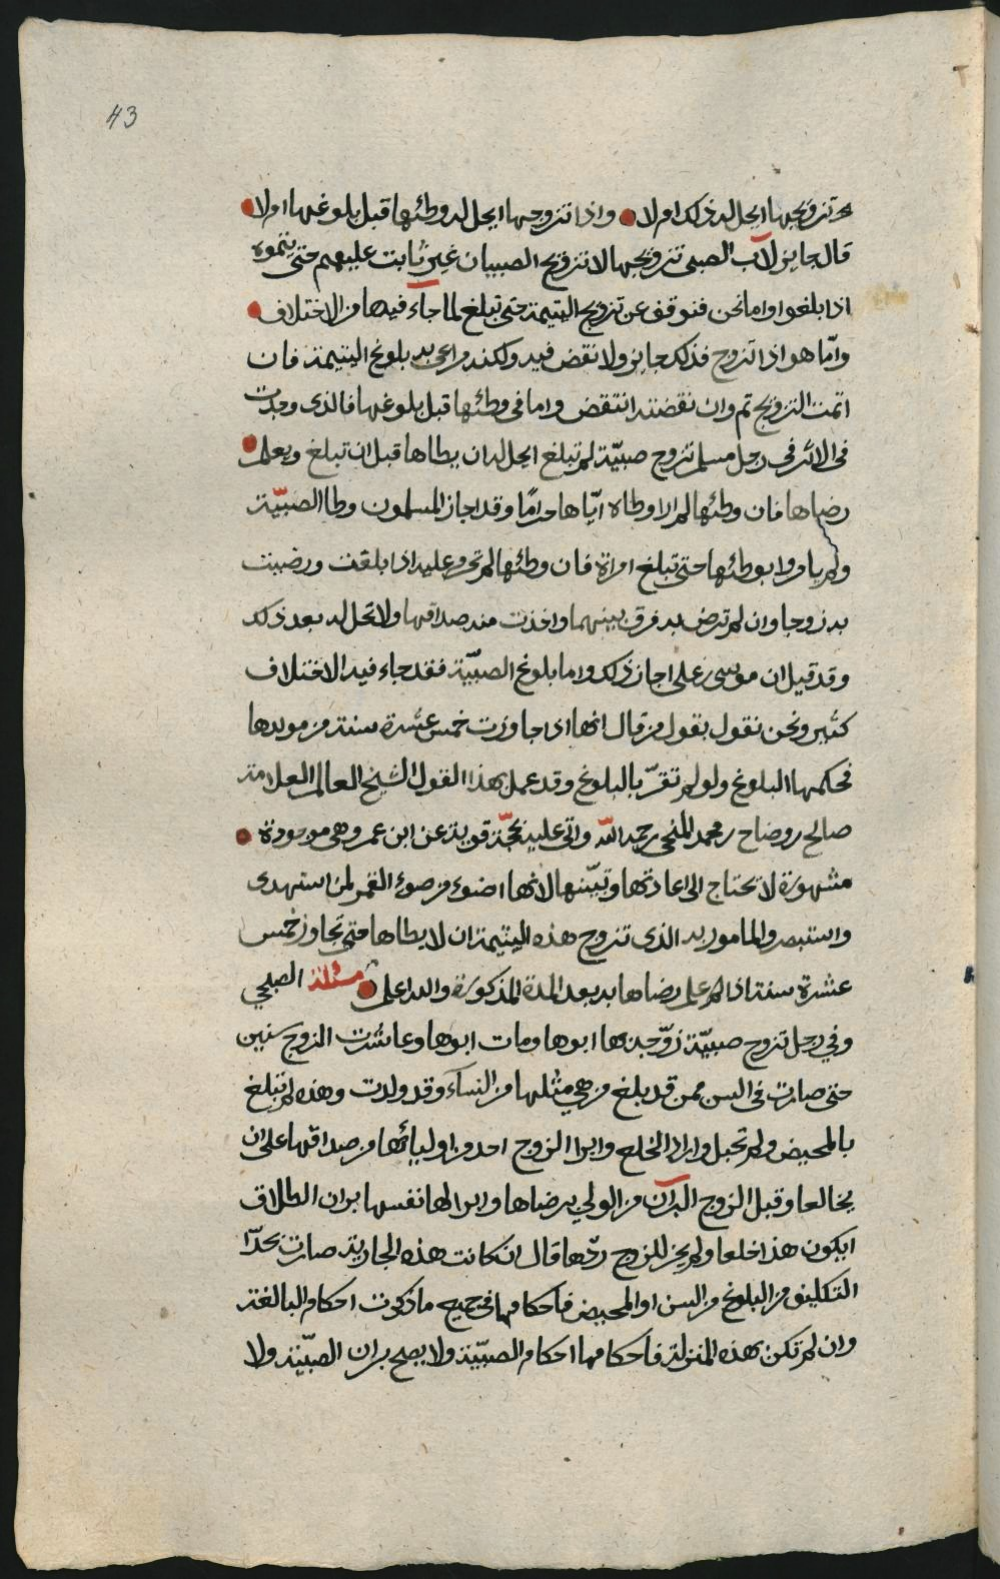 43
تزويجها ايحل له ذلك ام لا واذا تزوجها ايحل له وطئها قبل بلوغها ام لا
قال جايز لاب الصبي تزويجها لا تزويج الصبيان غير ثابت عليهم حتى يتموه
اذا بلغوا واما نحن فنوقف عن تزويج اليتيمة حتى تبلغ لما جاء فيها من الاختلاف
وامّا هو اذا تزوج فذلك جايز ولا نقض فيه ولكنه مراعى به بلوغ اليتيمة فان
اتمت التزويج تم وان نقضته انتقض واما في وطئها قبل بلوغها فالذى وجدت
في الاثر في رجل مسلم تزوج صبيّة لم تبلغ ايحل له ان يطاها قبل ان تبلغ ويعلم
رضاها فان وطئها لم ار وطاه ايّاها حرامًا وقد اجاز المسلمون وطا الصبيّة
ولم يامروا بوطئها حتى تبلغ امراة فان وطئها لم تحرم عليه اذا بلغت ورضيت
به زوجا وان لم ترض به فرق بينهما واخذت منه صداقها ولا تحل له بعد ذلك
وقد قيل ان موسى بن علي اجاز ذلك واما بلوغ الصبيّة فقد جاء فيه الاختلاف
كثير ونحن نقول بقول من قال انها اذا جاوزت خمس عشرة سنة من مولدها
فحكمها البلوغ ولو لم تقرّ بالبلوغ وقد عمل بهذا القول الشيخ العالم العلامة
صالح بن وضاح بن محمد المنحي رحمه اللّه واتى عليه بحجّة قوية عن ابن عمر وهي موجودة
مشهورة لا تحتاج الى اعادتها وتبيّنها لانها اضوء من ضوء القمر لمن استهدى
واستبصر والمامور به الذى تزوج هذه اليتيمة ان لا يطاها حتى تجاوز خمس
عشرة سنة اذا لم علم رضاها به بعد المدة المذكورة والله اعلم مسئلة الصبحي
وفي رجل تزوج صبيّة زوّجه بها ابوها ومات ابوها وعاشرت الزوج سنين
حتى صارت في السن ممن قد بلغ من هي مثلها من النسآء وقد ولدت وهذه لم تبلغ
بالمحيض ولم تحبل وارادا الخلع وابرا الزوج احد من اوليائها من صداقها على ان
يخالعها وقبل الزوج البرآن من الولي برضاها وابرا لها نفسها بران الطلاق
ايكون هذا خلعا ولم يجز للزوج ردّها قال ان كانت هذه الجارية صارت بحدّ
التكليف من البلوغ من السن او المحيض فاحكامها في جميع ما ذكرت احكام البالغة
وان لم تكن بهذه المنزلة فاحكامها احكام الصبيّة ولا يصح بران الصبيّة ولا